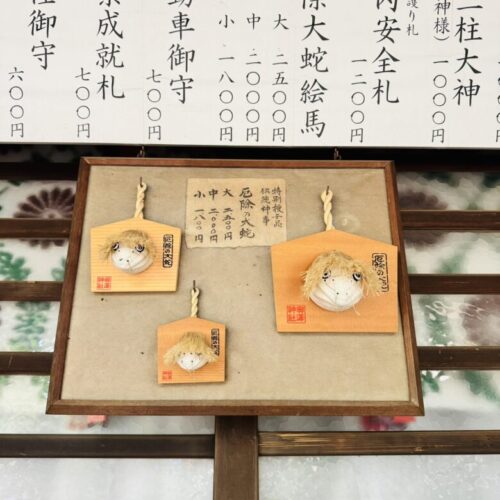 一柱大神
一〇〇〇円
内安全札
一二〇〇円
除大蛇絵馬
大 二五〇〇円
中 二〇〇〇円
小 一八〇〇円
動車御守
七〇〇円
成就札
七〇〇円
御守
六〇〇円
特別授与品
祖蛇神事
厄除の大蛇
大 二五〇〇円
中 二〇〇〇円
小 一八〇〇円
厄除の大蛇